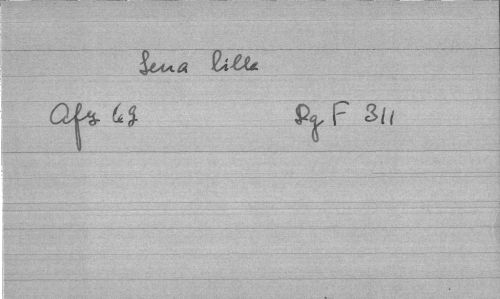 Lena lilla
Afz 69
Rg F 311